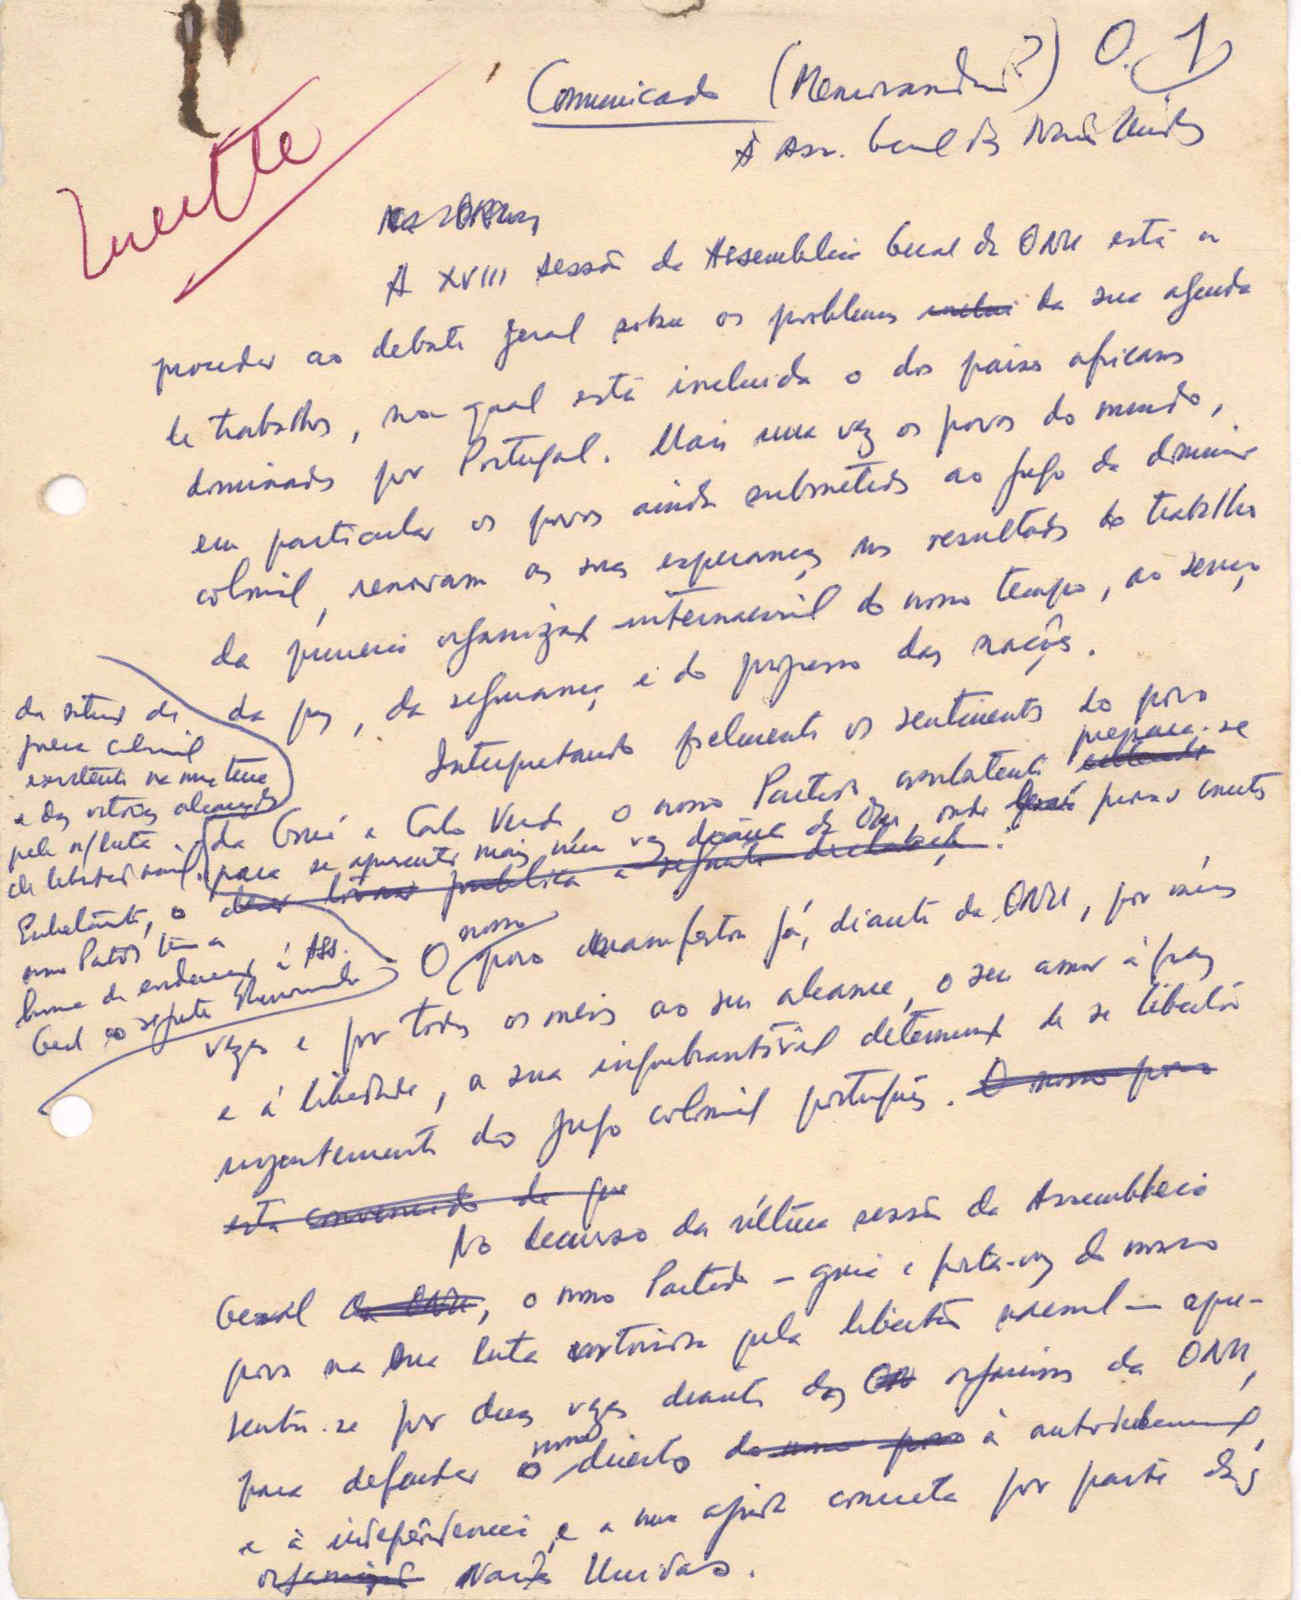 Comunicado (Memorandum?) O. 1
À Ass. Geral das Nações Unidas
Inédito
A XVIII sessão da Assembleia Geral da ONU está a
proceder ao debate geral sobre os problemas da sua agenda
de trabalhos, na qual está incluida o dos países africanos
dominados por Portugal. Mais uma vez os povos do mundo,
em particular os povos ainda submetidos ao jugo da dominação
colonial, renovam as suas esperanças nos resultados do trabalho
da primeira organização internacional do nosso tempo, ao serviço
da paz, da segurança e do progresso das nações.
Interpretando fielmente os sentimentos do povo
da Guiné e Cabo Verde, o nosso Partido combatente prepara-se
para se apresentar mais uma vez diante da ONU, onde provas concretas
da situação de
guerra colonial
existente na nossa terra
e das vitórias alcançadas
pela n/luta
de libertação nacional.
Entretanto, o
nosso Partido tem a
honra de endereçar à Ass.
Geral o seguinte Memorando
O nosso povo manifestou já, diante da ONU, por várias
vezes e por todos os meios ao seu alcance, o seu amor à paz
e à liberdade, a sua inquebrantável determinação de se libertar
urgentemente do jugo colonial português. O nosso povo
está convencido de que
No decurso da última sessão da Assembleia
Geral da ONU, o nosso Partido – guia e porta-voz do nosso
povo na sua luta vitoriosa pela libertação nacional – apre-
sentou-se por duas vezes diante dos orgãos da ONU,
para defender o nosso direito do nosso povo à autodeterminação
e à independência, e a uma ajuda concreta por parte das
organização Nações Unidas.